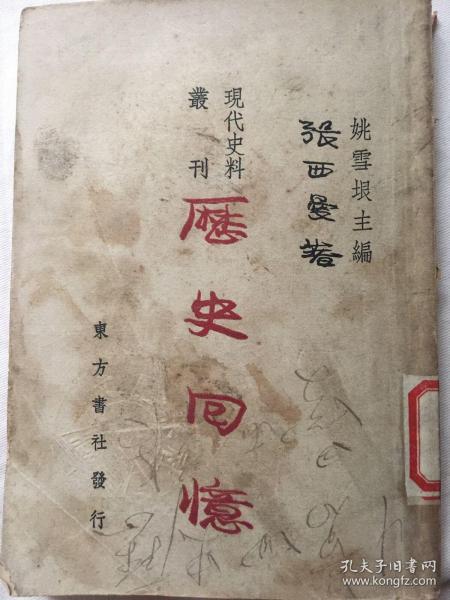 姚雪垠主編
張西曼著
現代史料
叢刊
歷史回憶
東方書社發行
孔夫子旧书网
www.kongfz.com